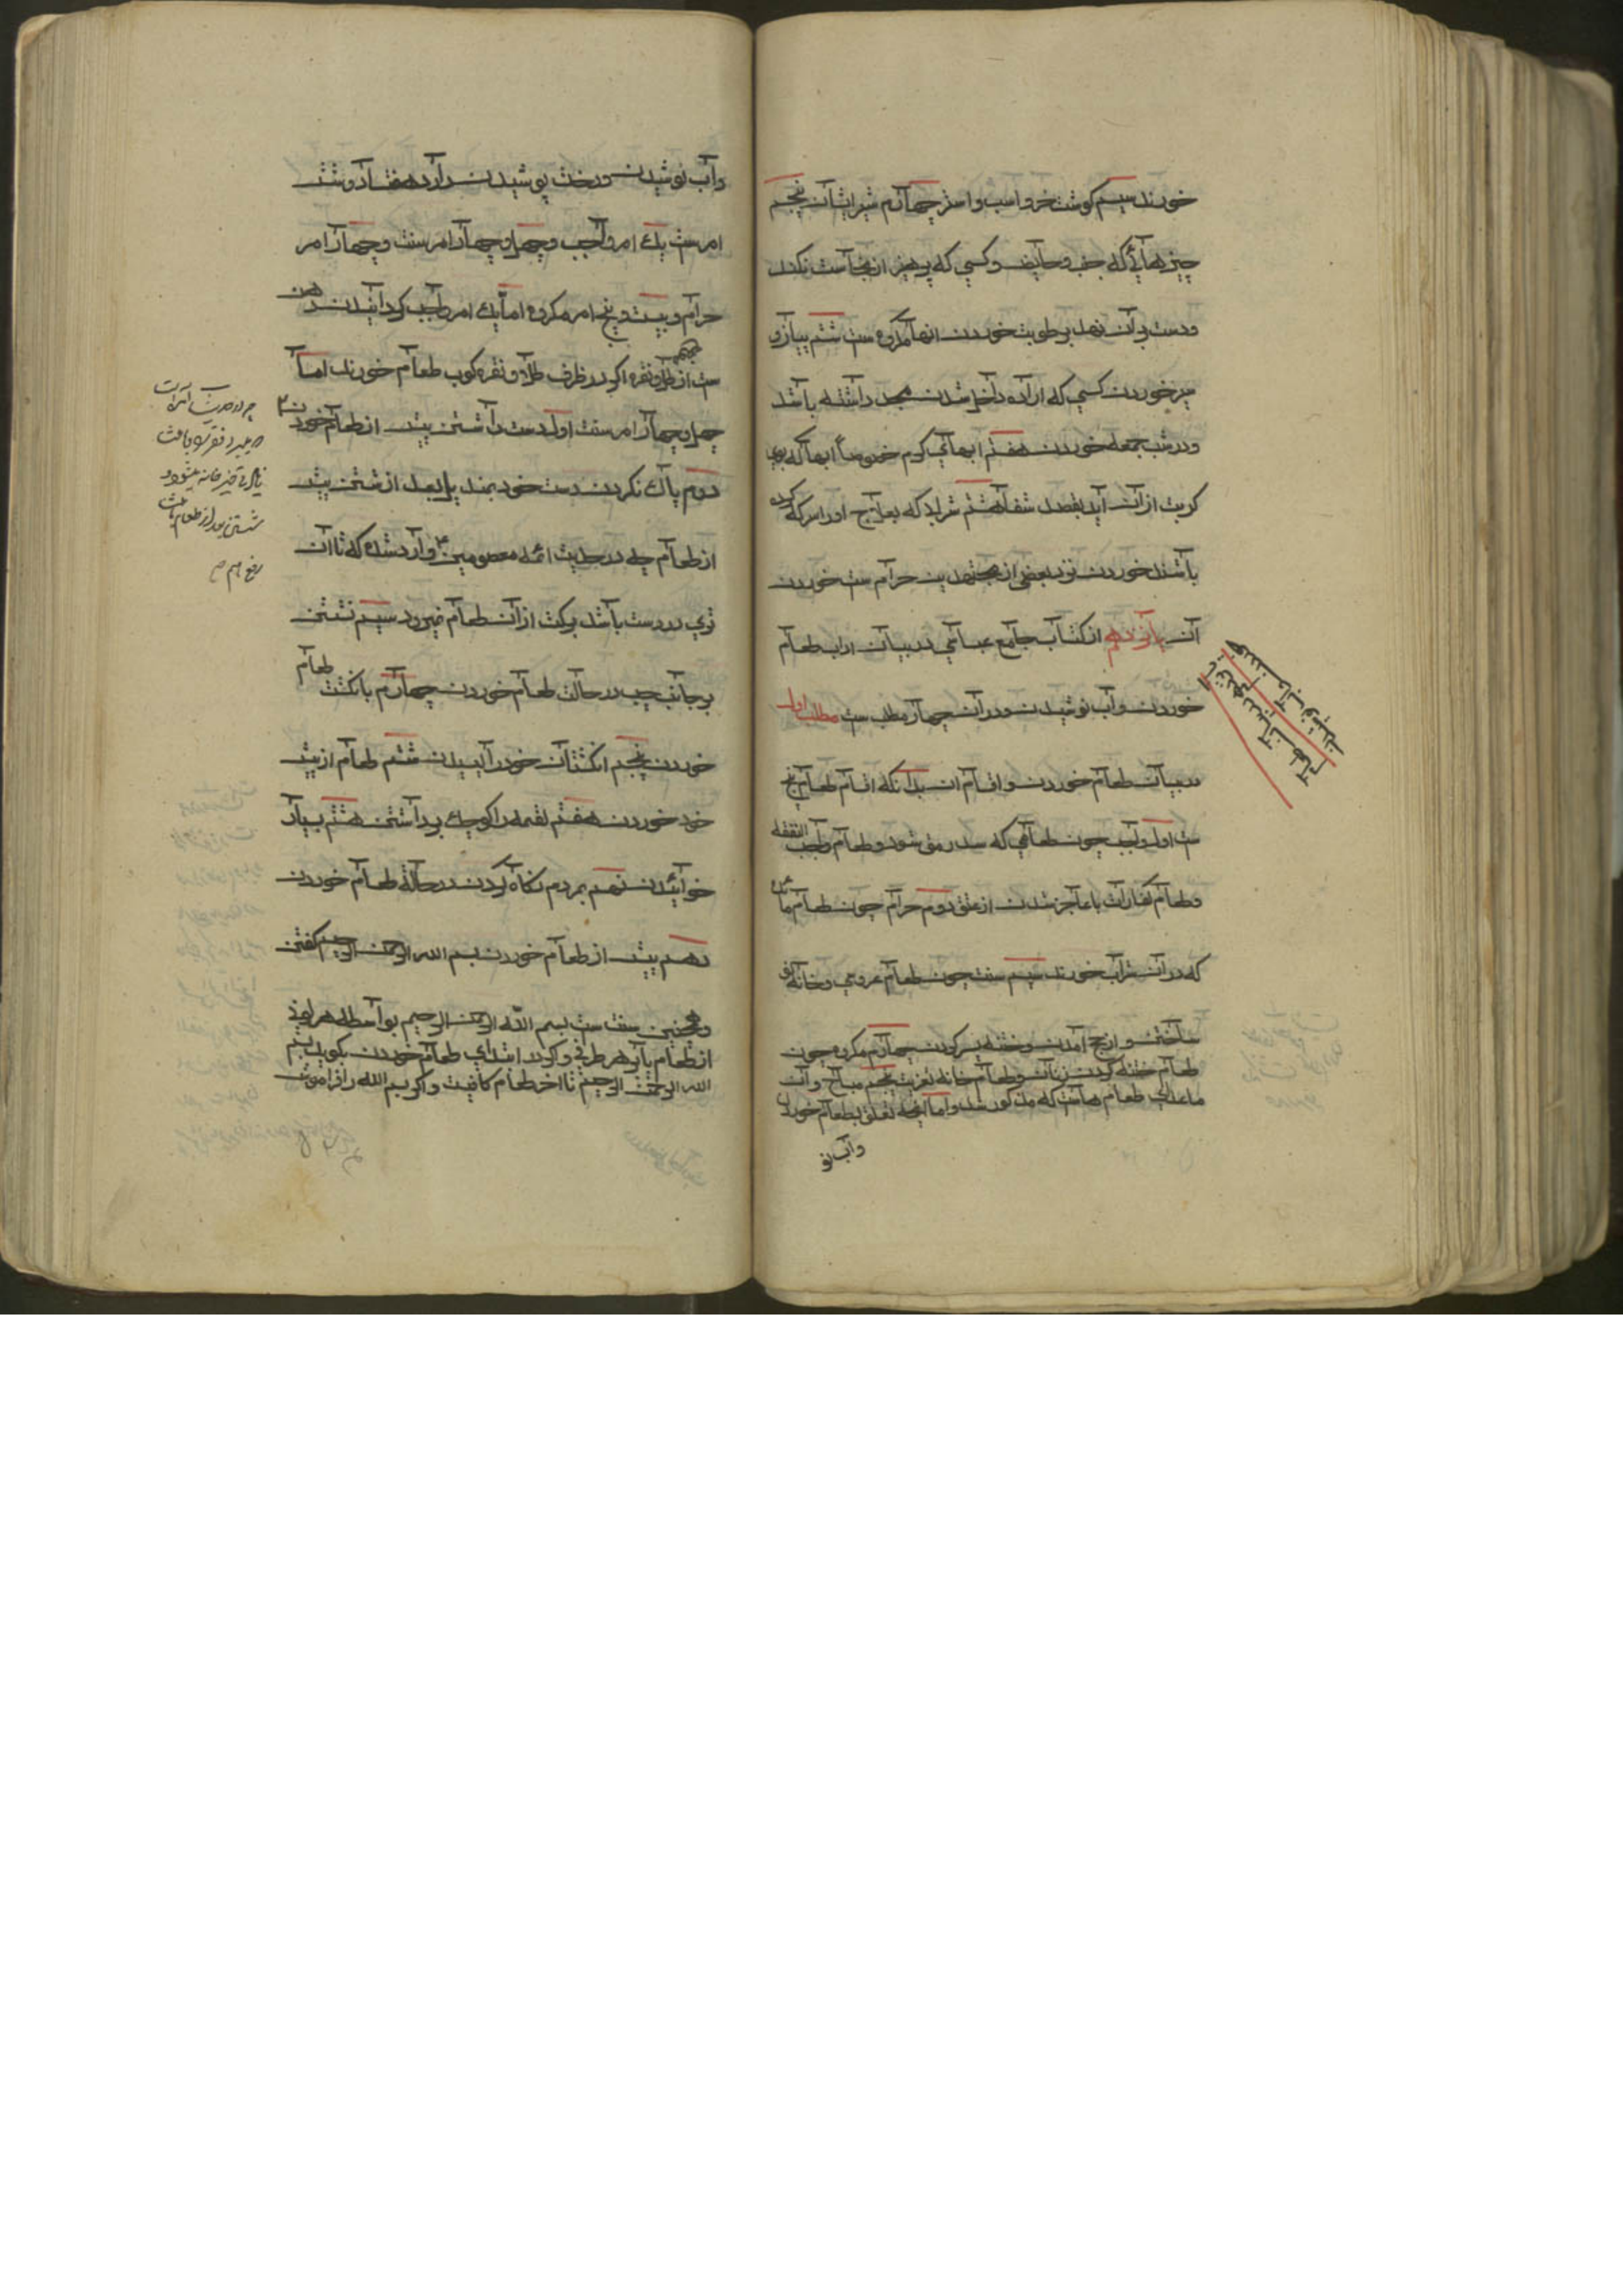 خورند سیم گوشت خر و اسب و استر چهارم شیر ایشان پنجم
چیزهائی که جنب و حایض و کسی که پرهیز از نجاست نکند
و دست بر آن نهد برطوبت خوردن انها مکروه ست ششم پیاز و
سیر خوردن کسی که اراده داخل شدن مسجد داشته باشد
و در شب جمعه خوردن هفتم ابهای گرم خصوصاً ابها که بوی
کبریت از ان آید بقصد شفا هشتم شرابی که بعلاج او را سرکه کرده
باشند خوردن نزد بعضی از مجتهدین حرام ست خوردن
آن پانزدهم از کتاب جامع عباسی در بیان اداب طعام
خوردن و آب نوشیدن و در آن چهار مطلب ست مطلب اول
در بیان طعام خوردن و اقسام ان بدانکه اقسام طعام پنج
ست اول واجب چون طعامی که سد رمق شود و طعام واجب النفقه
و طعام کفارات با عاجز شدن از عتق دوم حرام چون طعام مائده
که در آن شراب خورند سیم سنت چون طعام عروسی و خانه نو
ساختن و از حج آمدن و ختنه پسر کردن چهارم مکروه چون
طعام ختنه کردن زنان و طعام خانه تعزیت پنجم مباح و آن
ماعدای طعام هاست که مذکور شد و اما انچه تعلق بطعام خوردن
و آب نو
و آب نوشیدن و رخت پوشیدن دارد هفتاد و شش
امر ست یک امر واجب و چهل و چهار امر سنت و چهار امر
حرام و بیست و پنج امر مکروه اما یک امر واجب کردانیدن دهن
ست از طلا و نقره اگر در ظرف طلا و نقره کوب طعام خورند اما
چهل و چهار امر سنت اول دست داشتن پیش از طعام خوردن
دوم پاک نکردن دست خود بمندیل بعد از شستن پیش
از طعام چه در حدیث ائمه معصومین وارد شده که تا ان
تری در دست باشد برکت از ان طعام نمیرود سیم نشستن
بر جانب چپ در حالت طعام خوردن چهارم با نکشت طعام
خوردن پنجم انکشتان خود را لیسیدن ششم طعام از پیش
خود خوردن هفتم لقمه را کوچک برداشتن هشتم بسیار
خوائیدن نهم بمردم نگاه نکردن در حالة طعام خوردن
دهم پیش از طعام خوردن بسم الله الرحمن الرحیم گفتن
و همچنین سنت ست بسم الله الرحمن الرحیم بواسطه هر لونی
از طعام یا از هر ظرفی و اگر در ابتدای طعام خوردن بگوید بسم
الله الرحمن الرحیم تا اخر طعام کافیست و اگر بسم الله را فراموش
چه در حدیث
شستن بعد از طعام باعث
رفع